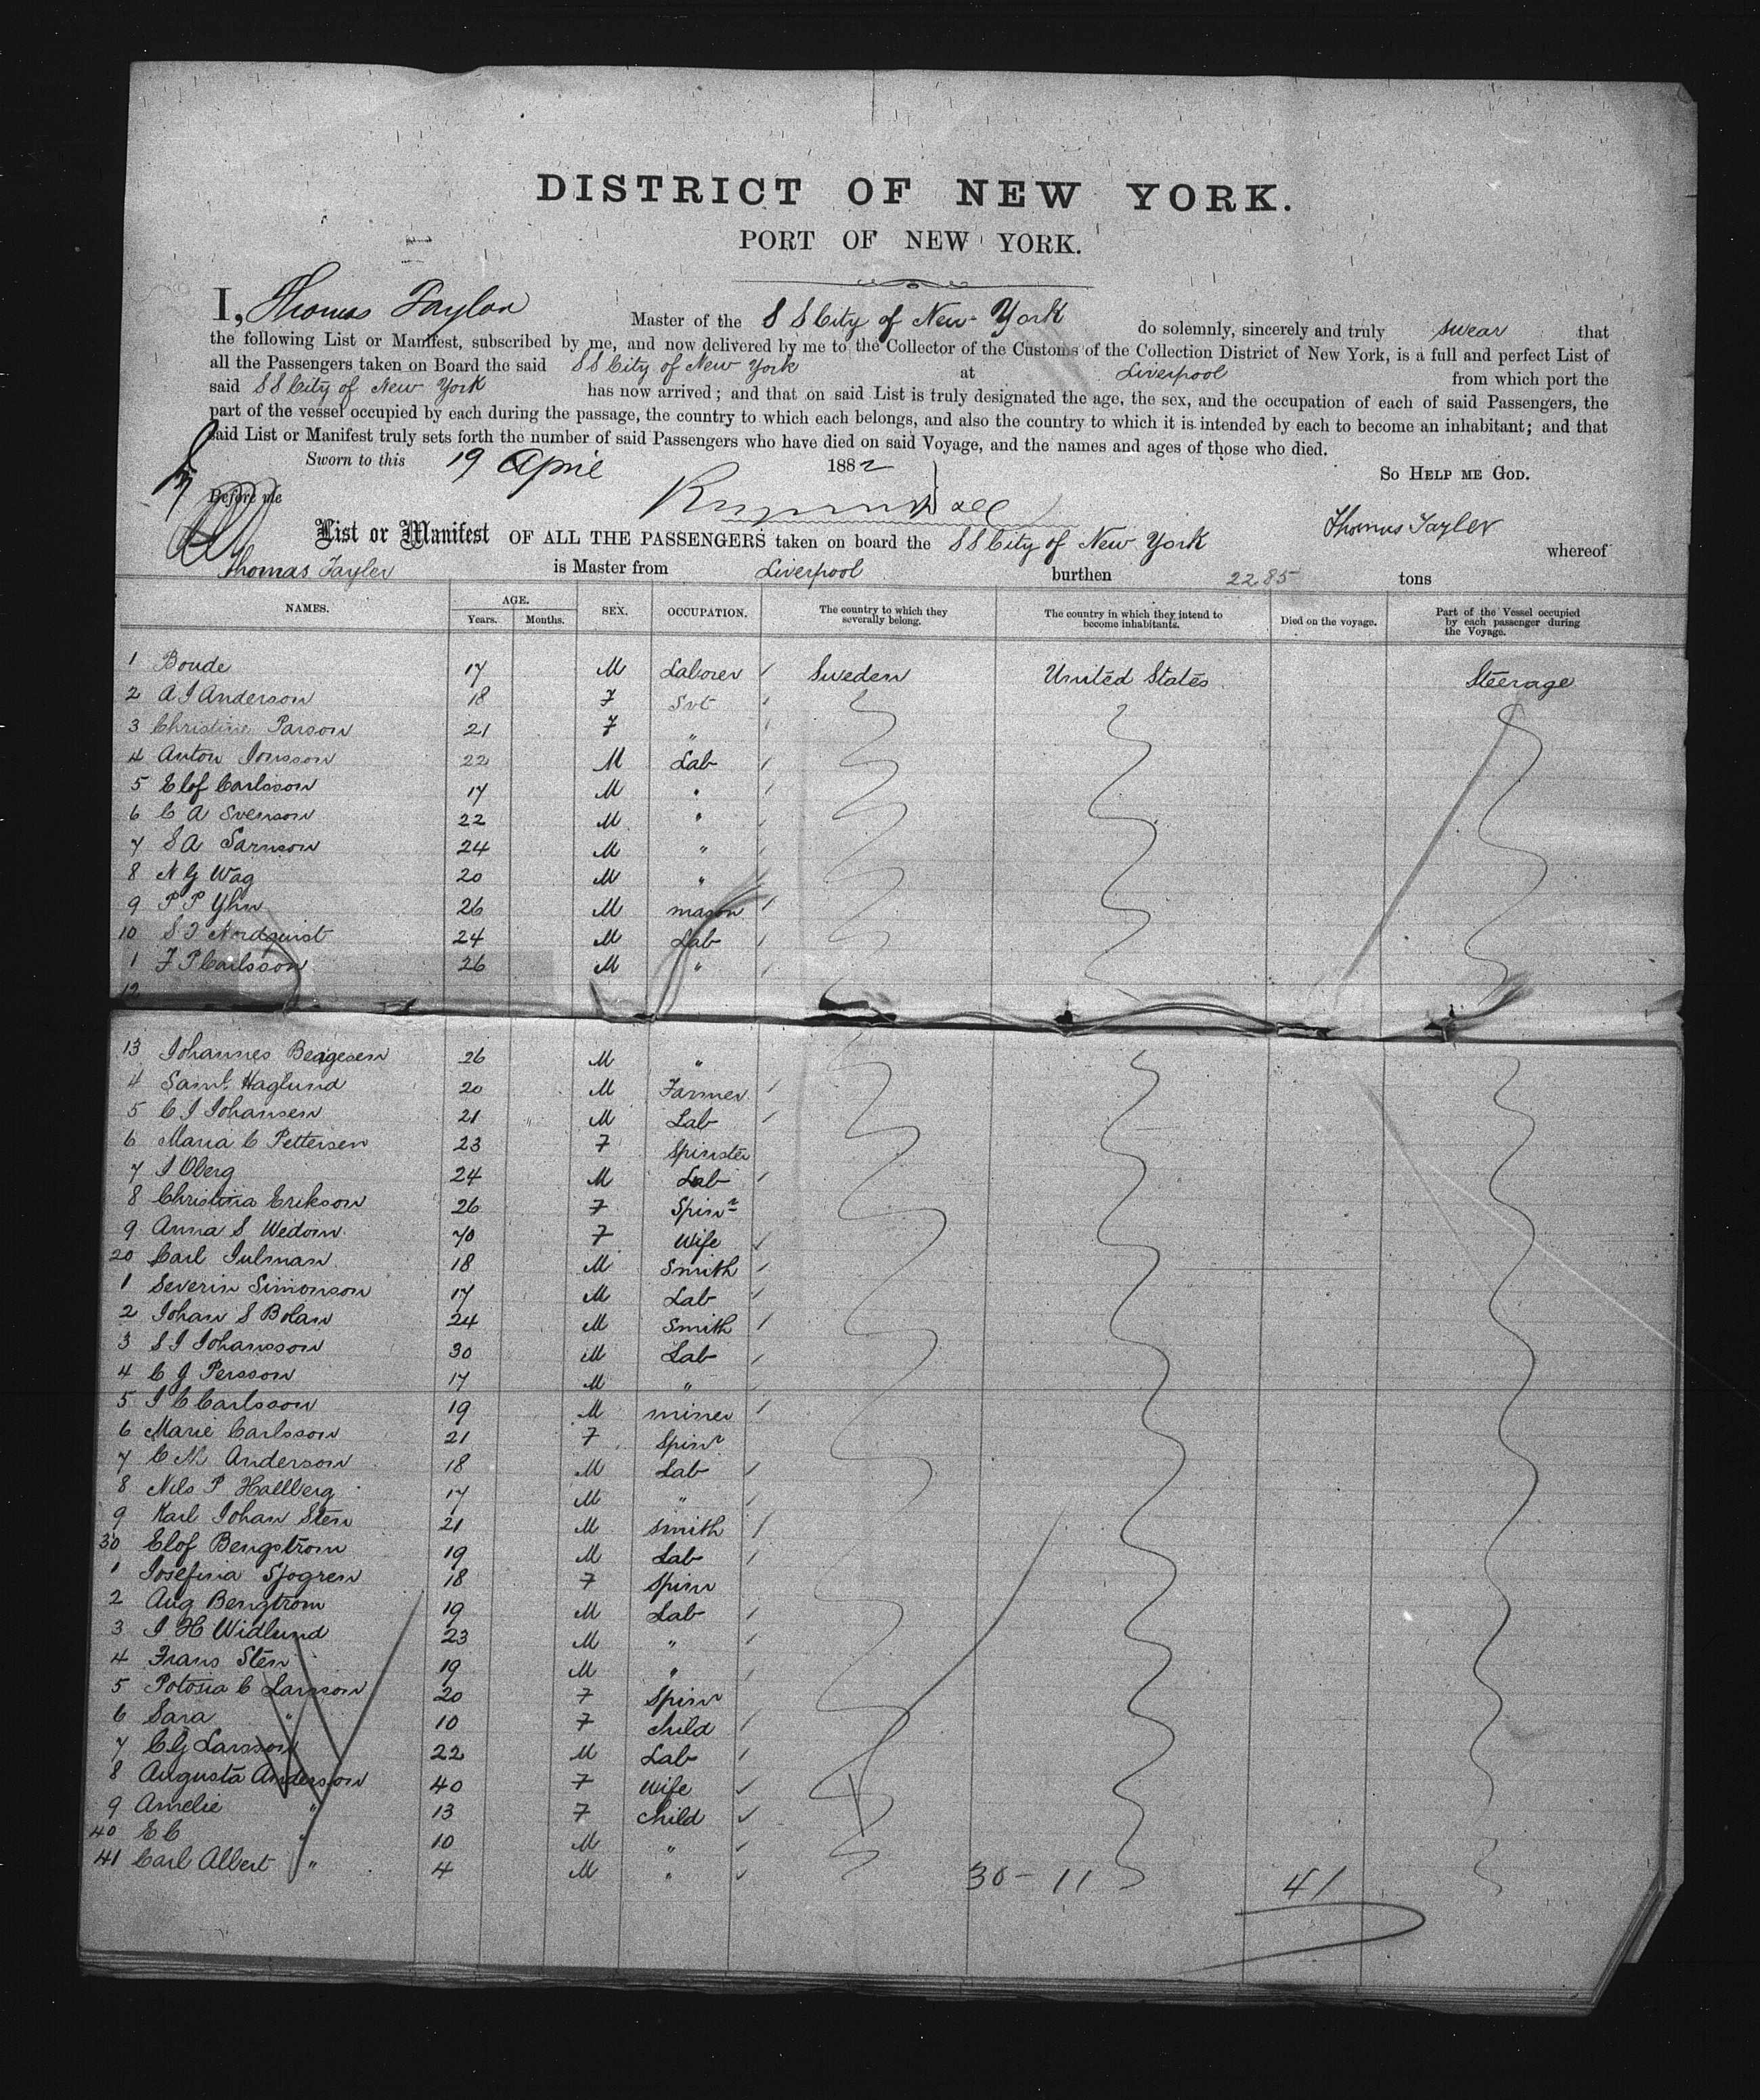 DISTRICT OF NEW YORK.
PORT OF NEW YORK.
I, Thomas Tayler Master of the S S City of New York do solemnly, sincerely and truly swear that
the following List or Manifest, subscribed by me, and now delivered by me to the Collector of the Customs of the Collection District of New York, is a full and perfect List of
all the Passengers taken on Board the said S S City of New York at Liverpool from which port the
said S S City of New York has now arrived; and that on said List is truly designated the age, the sex, and the occupation of each of said Passengers, the
part of the vessel occupied by each during the passage, the country to which each belongs, and also the country to which it is intended by each to become an inhabitant; and that
said List or Manifest truly sets forth the number of said Passengers who have died on said Voyage, and the names and ages of those who died.
Sworn to this 19 April 1882 SO HELP ME GOD.
Before me
Thomas Tayler
List or Manifest OF ALL THE PASSENGERS taken on board the S S City of New York whereof
Thomas Tayler is Master from Liverpool burthen 2285 tons
NAMES. AGE. Years. Months. SEX. OCCUPATION. The country to which they severally belong. The country in which they intend to become inhabitants. Died on the voyage. Part of the Vessel occupied by each passenger during the Voyage.
1 Boude 17 M Laborer Sweden United States Steerage
2 A I Anderson 18 F Svt
3 Christine Parson 21 F "
4 Anton Jonsson 22 M Lab
5 Elof Carlsson 17 M "
6 C A Svenson 22 M "
7 S A Sarnson 24 M "
8 N G Wag 20 M "
9 P P Yhn 26 M mason
10 S I Nordquist 24 M Lab
1 F P Carlsson 26 M "
12
13 Johannes Bengesen 26 M "
4 Saml Haglund 20 M Farmer
5 C I Johansen 21 M Lab
6 Maria C Pettersen 23 F Spinster
7 I Oberg 24 M Lab
8 Christina Erikson 26 F Spinr
9 Anna S Wedom 70 F Wife
20 Carl Julman 18 M Smith
1 Severin Simonson 17 M Lab
2 Johan S Bolan 24 M Smith
3 S I Johansson 30 M Lab
4 C J Persson 17 M "
5 I C Carlsson 19 M miner
6 Marie Carlsson 21 F Spinr
7 C M Anderson 18 M Lab
8 Nils P Hallberg 17 M "
9 Karl Johan Sten 21 M Smith
30 Elof Bengstrom 19 M Lab
1 Josefina Sjogren 18 F Spinr
2 Aug Bengtrom 19 M Lab
3 I H Widlund 23 M "
4 Frans Sten 19 M "
5 C Larsson 20 F Spinr
6 Sara " 10 F child
7 C G Larsson 22 M Lab
8 Augusta Anderson 40 F Wife
9 Amelie " 13 F child
40 E C " 10 M "
41 Carl Albert " 4 M "
30 - 11 41